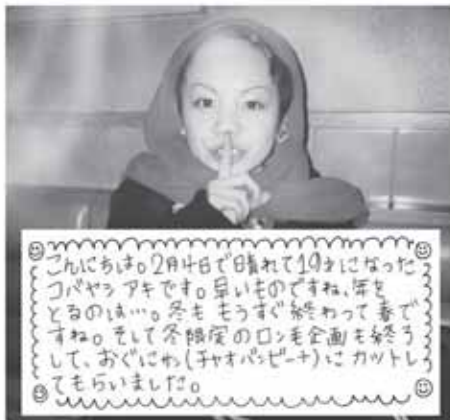 こんにちは。2月4日で晴れて19才になった
コバヤシ アキです。早いものですね、年を
とるのは…。冬も もうすぐ 終わって 春で
すね。そして冬限定のロン毛企画も終ろ
して、おぐにゃん(チャオバンビーナ)に カットし
てもらいました。